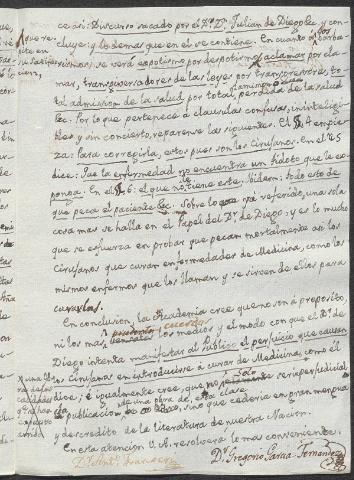 cesos: Discurso sacado por el Dr. Dn. Julian de Diego &c, y con-
cluye: y lo demas que en el se contiene. En cuanto a barba-
rismos; se verá espotismo por despotismo, aclamar por cla-
mar, transgiversadores de las leyes por transgresores, to-
tal admision de la salud por total perdida de la salud
&c. Por lo que pertenece a clausulas confusas, inteligi-
bles y sin concierto, reparense las siguientes. El § 4 empie-
za: Para corregirla, estos pues son los Cirujanos. En el 5
dice: Pues la enfermedad no encuentra un tidoto que le ex-
ponga. En el § 6: el que no tiene este Ibidem: todo esto de
que peca el paciente &c. Sobre lo que va referido, una sola
cosa mas se halla en el Papel del Dr. de Diego: y es lo mucho
que se esfuerza en probar que pecan mortalmente asi los
Cirujanos que curan enfermedades de Medicina, como los
mismos enfermos que los llaman y se sirven de ellos para
curarlas.
En conclusion, la Academia cree que no son á proposito,
ni los mas prudentes los medios y el modo con que el Dr. de
Diego intenta manifestar al Publico el perjuicio que causan
los Cirujanos en introducirse á curar de Medicina, como él
dice; é igualmente cree, que no solo seria perjudicial
la publicacion de alguna obra de esta clase, sino que cederia en gran mengua
y descredito de la literatura de nuestra Nacion.
En esta atencion V. A. resolverá lo mas conveniente.
Dr. Gregorio Garcia Fernandez
Dr. Anto. Franseri